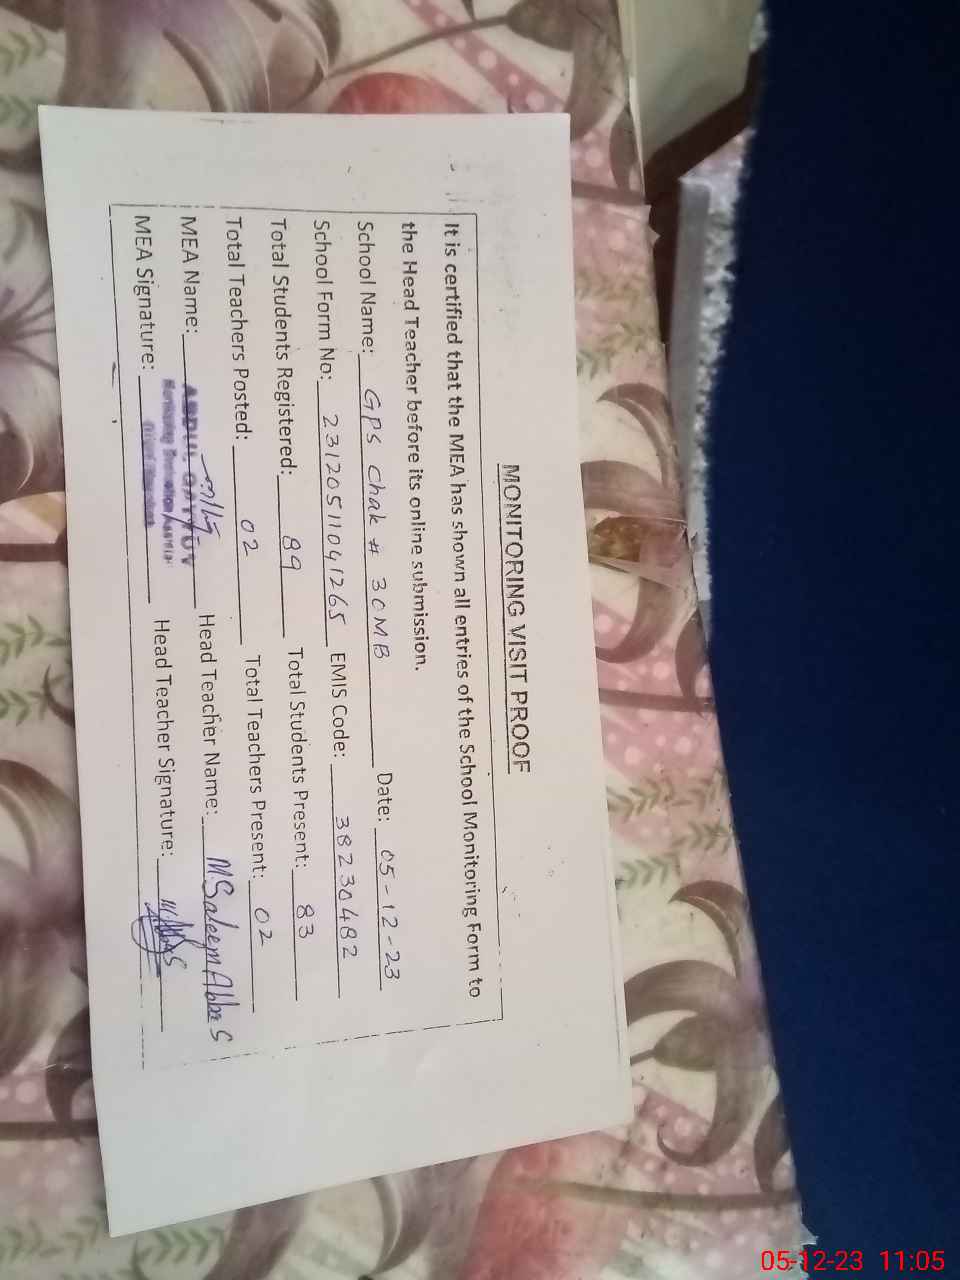 MONITORING VISIT PROOF
It is certified that the MEA has shown all entries of the School Monitoring Form to
the Head Teacher before its online submission.
School Name: GPS Chak # 30MB Date: 05-12-23
School Form No: 23120511041265 EMIS Code: 38230482
Total Students Registered: 89 Total Students Present: 83
Total Teachers Posted: 02 Total Teachers Present: 02
MEA Name: ABDUL Head Teacher Name: M.Saleem Abbas
MEA Signature: Monitoring Head Teacher Signature:
05-12-23 11:05